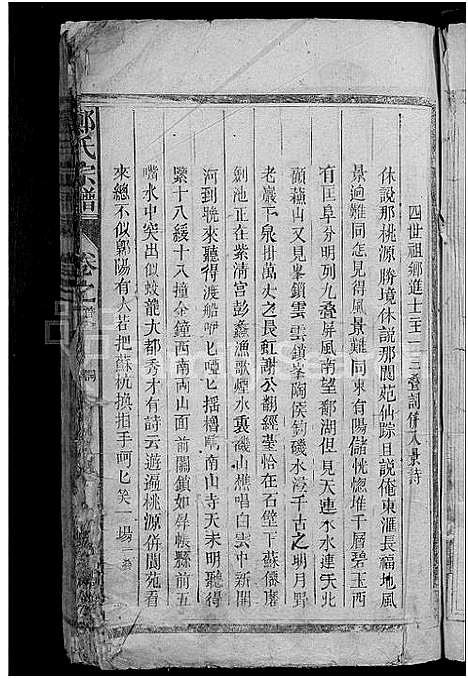 四世祖鄉進士三王一三叠詞併八景詩
休說那桃源勝境休說那閬苑仙踪且說俺東滙長福地風
景迥難同怎見得風景難同東有陽儲恍惚堆千層碧玉西
有匡阜分明列九叠屏風南望鄱湖但見天連水水連天北
顧蘓山又見峯鎖雲雲鎖峯陶侯釣磯水浸千古之明月野
老巖下泉掛萬丈之長虹謝公翻經臺恰在石壁下蘇僊
劍池正在紫清宮彭蠡漁歌煙水裏磯山樵唱白雲中新開
河到曉來聽得渡船咿匕啞匕搖櫓 南山寺天未明聽得
緊十八緩十八撞金鐘西南两山面前關鎖如屏帳縣前五
嘴水中突出似蛟龍大都秀才有詩云遊遍桃源併閬苑看
來總不似鄡陽有人若把蘇杭換指手呵匕笑一場 一叠
鄭氏宗譜
卷之首
詞